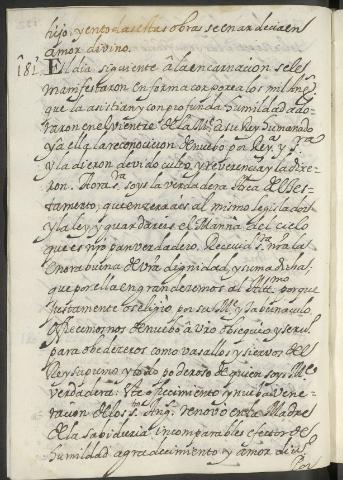 hijo, y en todas estas obras se enardecia en
amor divino.
181. El dia siguiente â la encarnacion se les
manifestaron en forma corporea los mil Ang.s
que la asistian y con profunda humildad ado-
raron en el vientre de la M.e a su Rey humanado
y a ella la reconocieron de nuebo por Reyna y S.ra
y la dieron devido culto, y reverencia y la dixe-
ron. Aora S.ra soys la verdadera Arca del tes-
tamento, que encerrais al mismo legislador
y la ley y guardareis el Manna del cielo
que es n̄ro pan verdadero. Recevid S.ra n̄ra la
enorabuena de v̄ra dignidad, y suma dicha,
que por ella engrandecemos al Altt.mo porque
justamente os eligio por su M.e y Tabernaculo.
Ofrecemonos de nuebo â v̄ro obsequio y serv.o
para obedeceros como vasallos y siervos del
Rey supremo y todo poderoso de quien soys M.e
verdadera. Este ofrecimiento y nueba vene-
racion de los S.tos Ang.s renovo en la Madre
de la sabiduria incomparables efectos de
humildad agradecimiento y amor divino.
Por